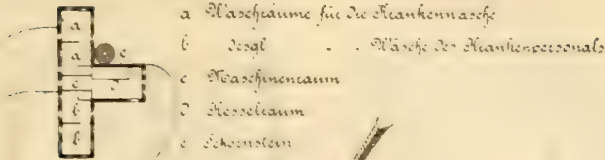 a Waschräume für die Krankenwäsche
a
b desgl. " " Wäsche des Krankenpersonals
a e
c Maschinenraum
c d
b d Kesselraum
b e Schornstein